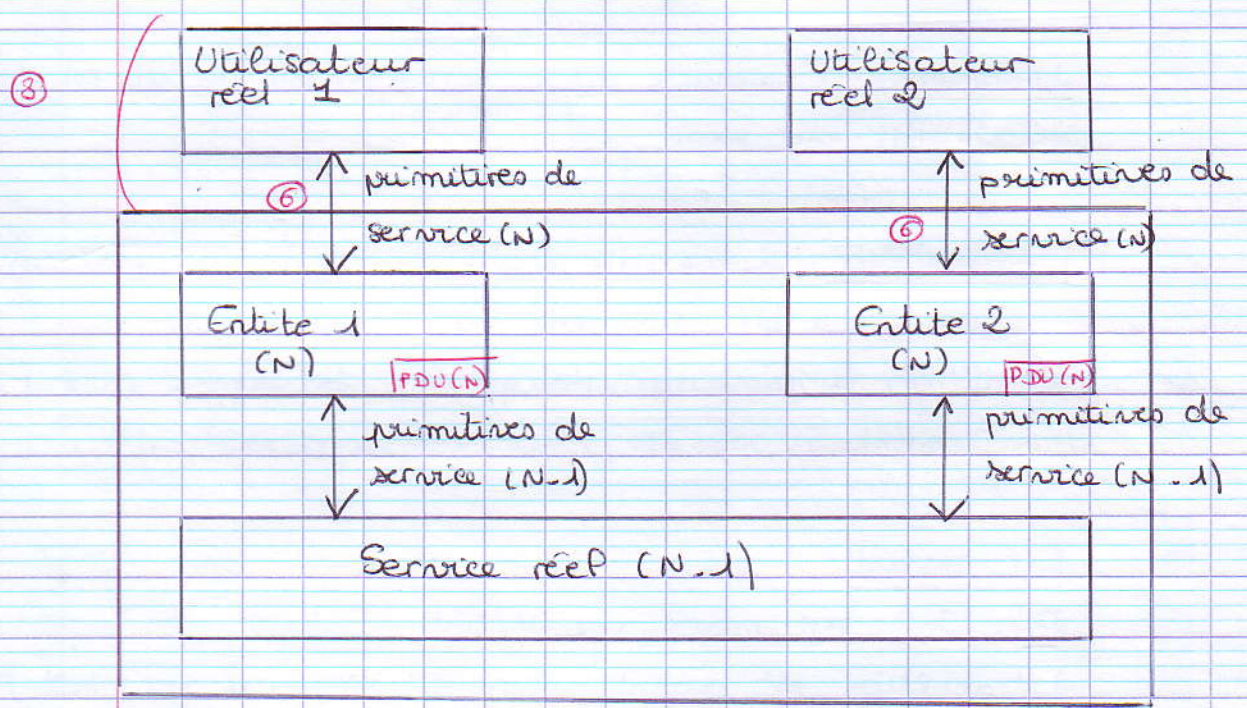 Utilisateur
réel 1
Utilisateur
réel 2
③
⑥
primitives de
service (N)
⑥
primitives de
service (N)
Entite 1
(N)
PDU(N)
Entite 2
(N)
PDU(N)
primitives de
service (N-1)
primitives de
service (N-1)
Service réel (N-1)